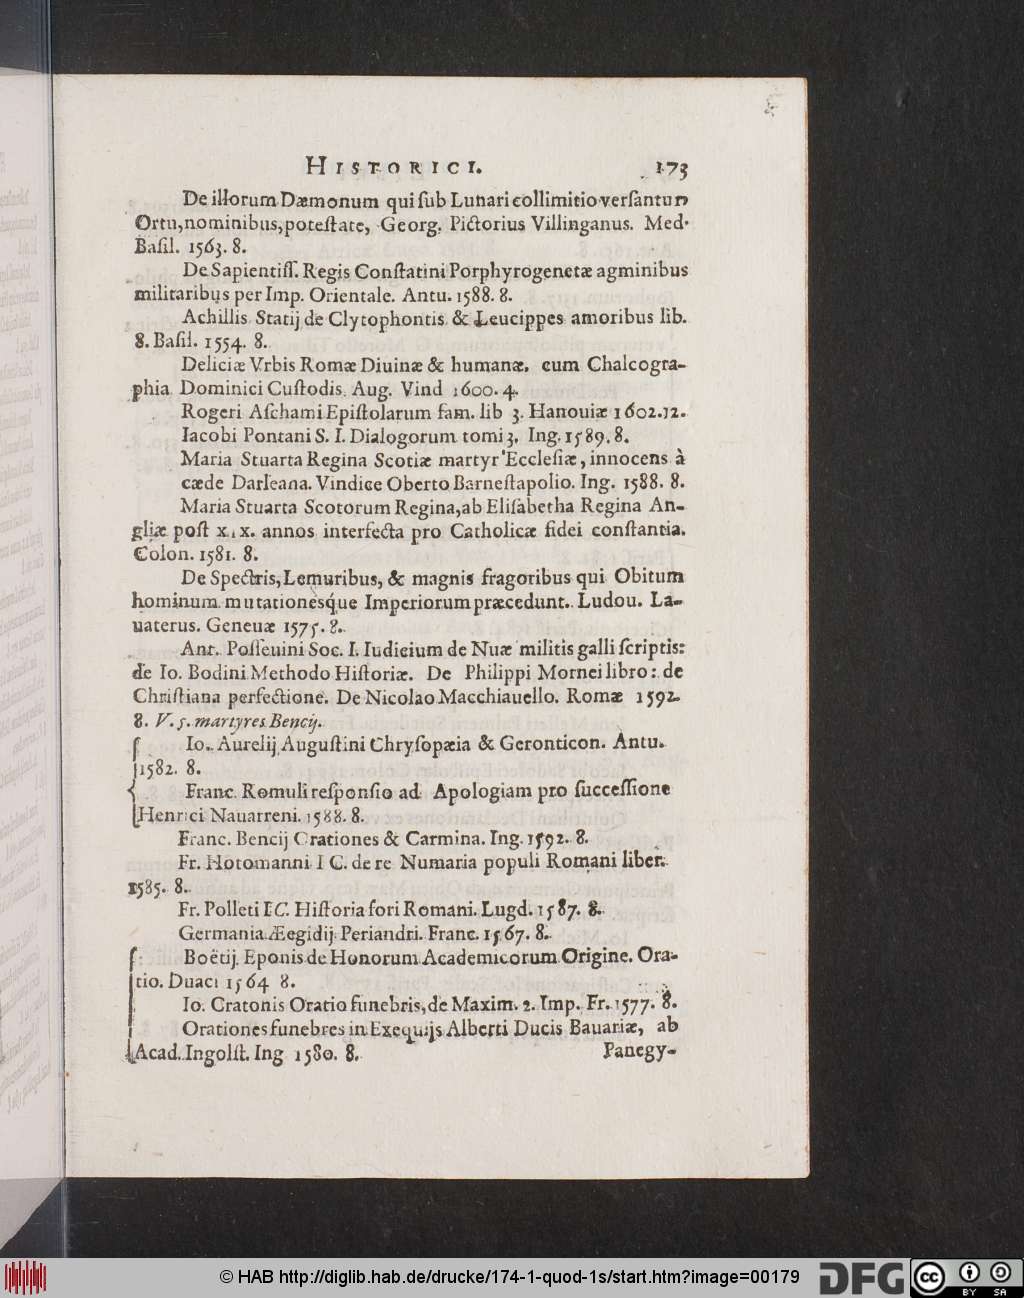 HISTORICI. 173
De illorum Dæmonum qui ſub Lunari collimitio verſantur
Ortu, nominibus, poteſtate, Georg. Pictorius Villinganus. Med.
Baſil. 1563. 8.
De Sapientiſſ. Regis Conſtatini Porphyrogenetæ agminibus
militaribus per Imp. Orientale. Antu. 1588. 8.
Achillis Statij de Clytophontis & Leucippes amoribus lib.
8. Baſil. 1554. 8.
Deliciæ Vrbis Romæ Diuinæ & humanæ, cum Chalcogra-
phia Dominici Cuſtodis. Aug. Vind 1600. 4.
Rogeri Aſchami Epiſtolarum fam. lib 3. Hanouiæ 1602. 12.
Iacobi Pontani S. I. Dialogorum tomi 3. Ing. 1589. 8.
Maria Stuarta Regina Scotiæ martyr Eccleſiæ, innocens à
cæde Darleana. Vindice Oberto Barneſtapolio. Ing. 1588. 8.
Maria Stuarta Scotorum Regina, ab Eliſabetha Regina An-
gliæ poſt x.ix. annos interfecta pro Catholicæ fidei conſtantia.
Colon. 1581. 8.
De Spectris, Lemuribus, & magnis fragoribus qui Obitum
hominum mutationésque Imperiorum præcedunt. Ludou. La-
uaterus. Geneuæ 1575. 8.
Ant. Poſſeuini Soc. I. Iudicium de Nuæ militis galli ſcriptis:
de Io. Bodini Methodo Hiſtoriæ. De Philippi Mornei libro: de
Chriſtiana perfectione. De Nicolao Macchiauello. Romæ 1592.
8. V. 5. martyres Bencij.
Io. Aurelij Auguſtini Chryſopæia & Geronticon. Antu.
1582. 8.
Franc. Romuli reſponſio ad Apologiam pro ſucceſſione
Henrici Nauarreni. 1588. 8.
Franc. Bencij Orationes & Carmina. Ing. 1592. 8.
Fr. Hotomanni I C. de re Numaria populi Romani liber.
1585. 8.
Fr. Polleti I C. Hiſtoria fori Romani. Lugd. 1587. 8.
Germania Æegidij Periandri. Franc. 1567. 8.
Boëtij Eponis de Honorum Academicorum Origine. Ora-
tio. Duaci 1564 8.
Io. Cratonis Oratio funebris, de Maxim. 2. Imp. Fr. 1577. 8.
Orationes funebres in Exequijs Alberti Ducis Bauariæ, ab
Acad. Ingolſt. Ing 1580. 8.
Panegy-
© HAB http://diglib.hab.de/drucke/174-1-quod-1s/start.htm?image=00179
DFG cc BY SA